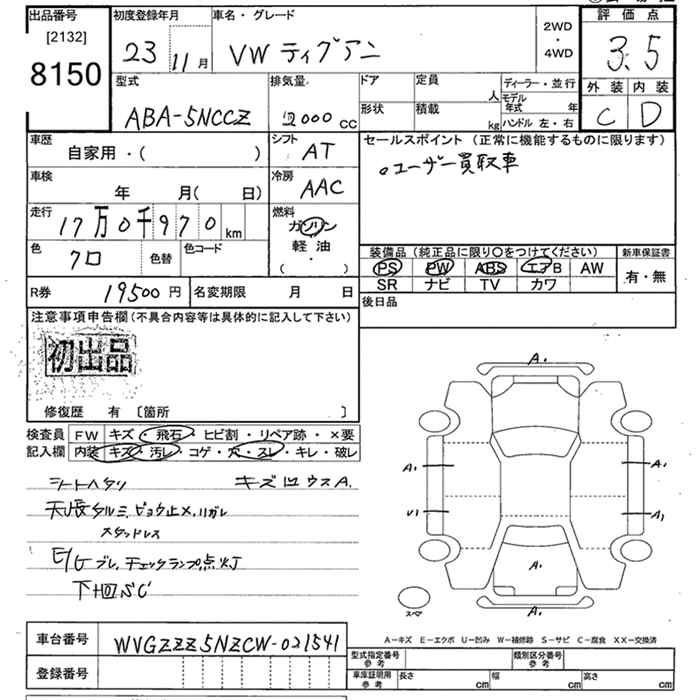 出品番号 初度登録年月 車名・グレード 評価点
[2132]
8150
23 11月 VW ティグアン 2WD・4WD 3.5
型式 排気量 ドア 定員 人 ディーラー・並行 外装 内装
ABA-5NCCZ 2000 cc 形状 積載 kg モデル年式 年 ハンドル 左・右 C D
車歴 シフト セールスポイント (正常に機能するものに限ります)
自家用・( ) AT 。ユーザー買取車
車検 年 月( 日) 冷房 AAC
走行 17万0千970km 燃料 ガソリン
軽油
・
( )
色 クロ 色替 色コード
装備品(純正品に限り○をつけてください) 新車保証書
PS PW ABS エアB AW 有・無
SR ナビ TV カワ
R券 19500円 名変期限 月 日 後日品
注意事項申告欄(不具合内容等は具体的に記入して下さい)
初出品
修復歴 有 [箇所 ]
検査員 FW キズ・飛石・ヒビ割・リペア跡・×要
記入欄 内装 キズ・汚レ・コゲ・穴・スレ・キレ・破レ
シートヘタリ キズ凹ウスA.
天張タルミ、ビョウ止メ、ハガレ
スタッドレス
E/G ブレ、チェックランプ点灯
下回SC
A1
A1 A1
U1 A1
A1
スペア A1
A-キズ E-エクボ U-凹み W-補修跡 S-サビ C-腐食 XX-交換済
車台番号 WVGZZZ5NZCW-021541
型式指定番号 参考 類別区分番号 参考
登録番号 車庫証明用 参考 長さ cm 幅 cm 高さ cm